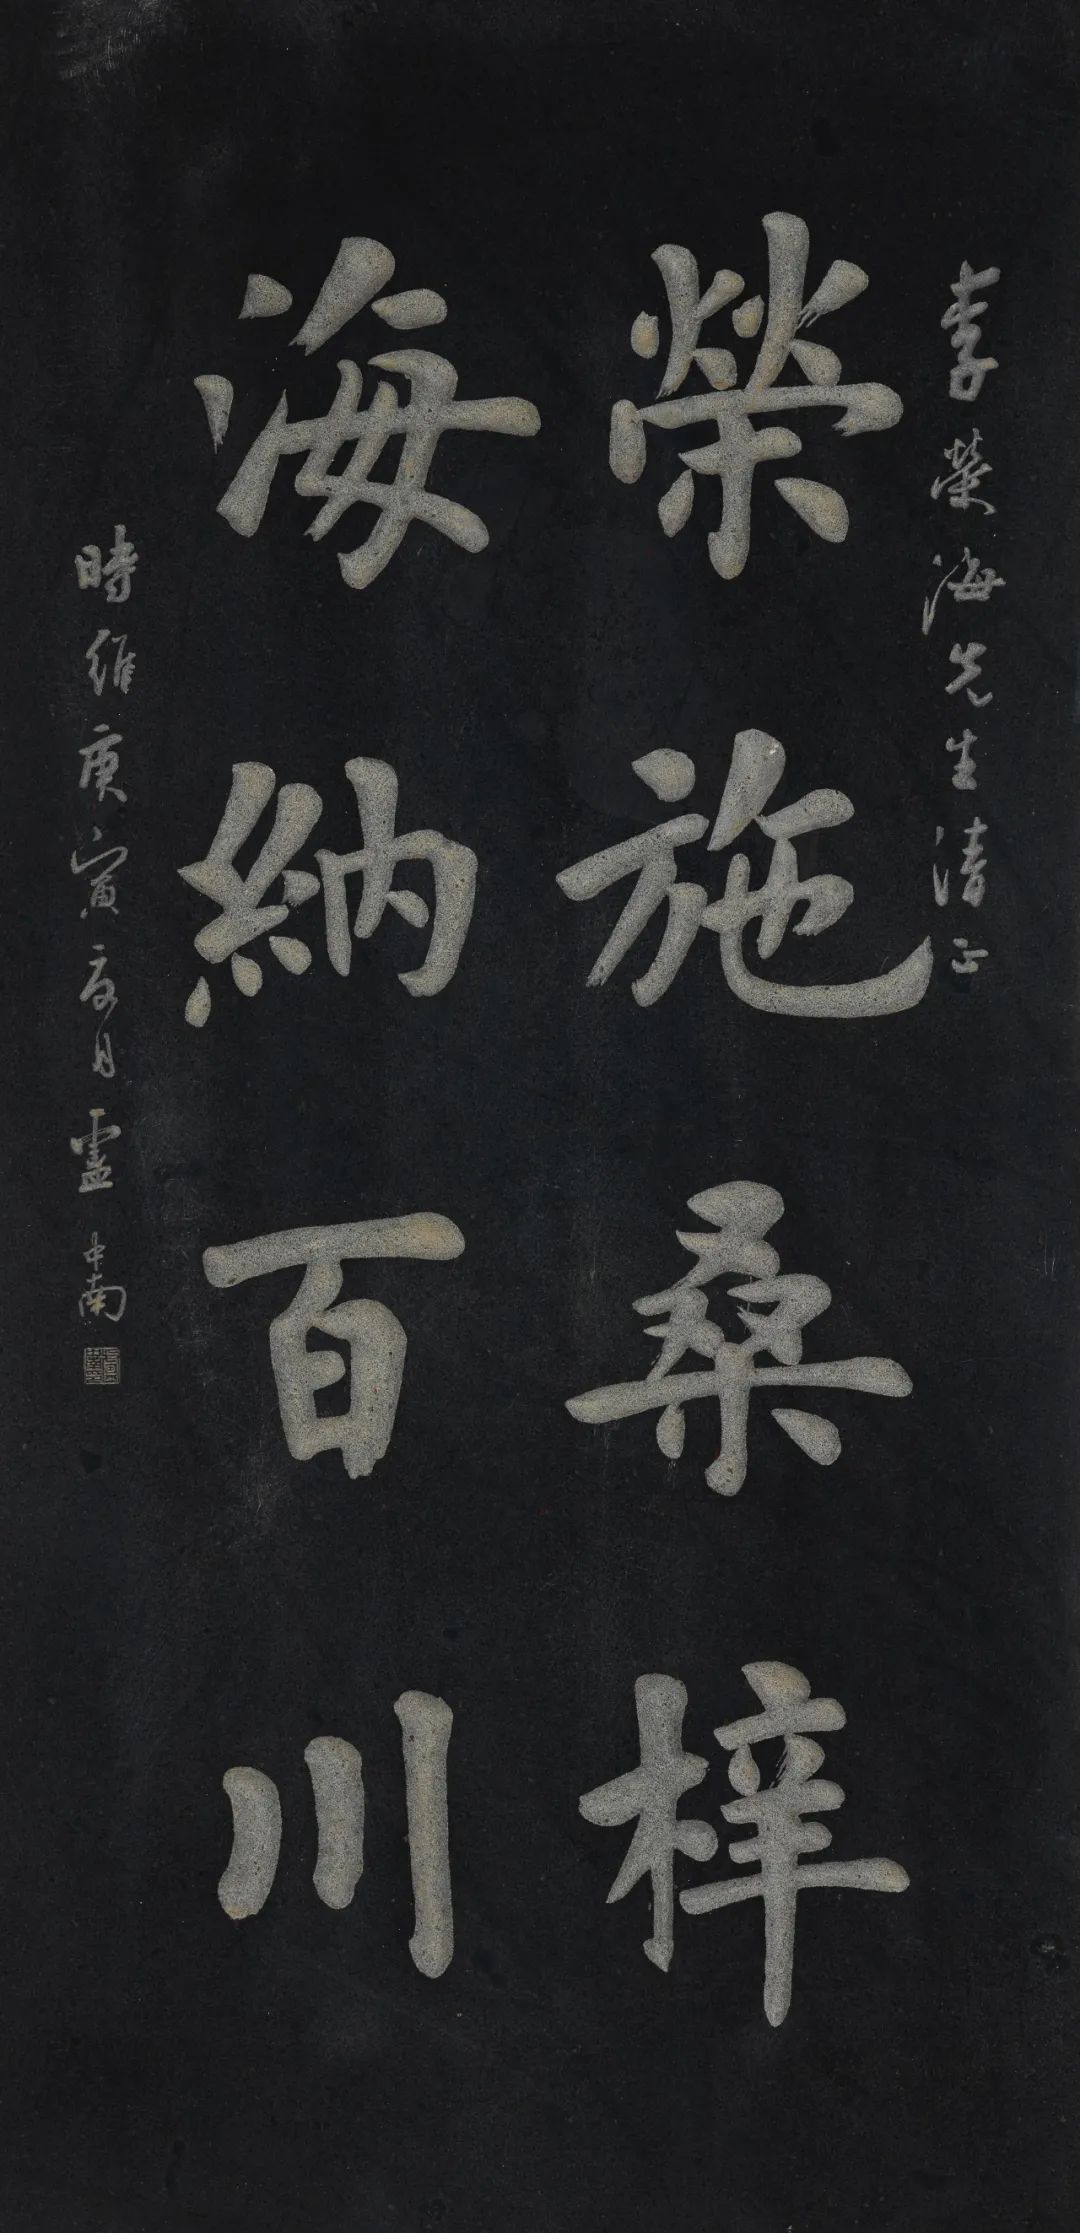 李榮海先生清正
榮施桑梓
海納百川
時維庚寅夏月盧中南